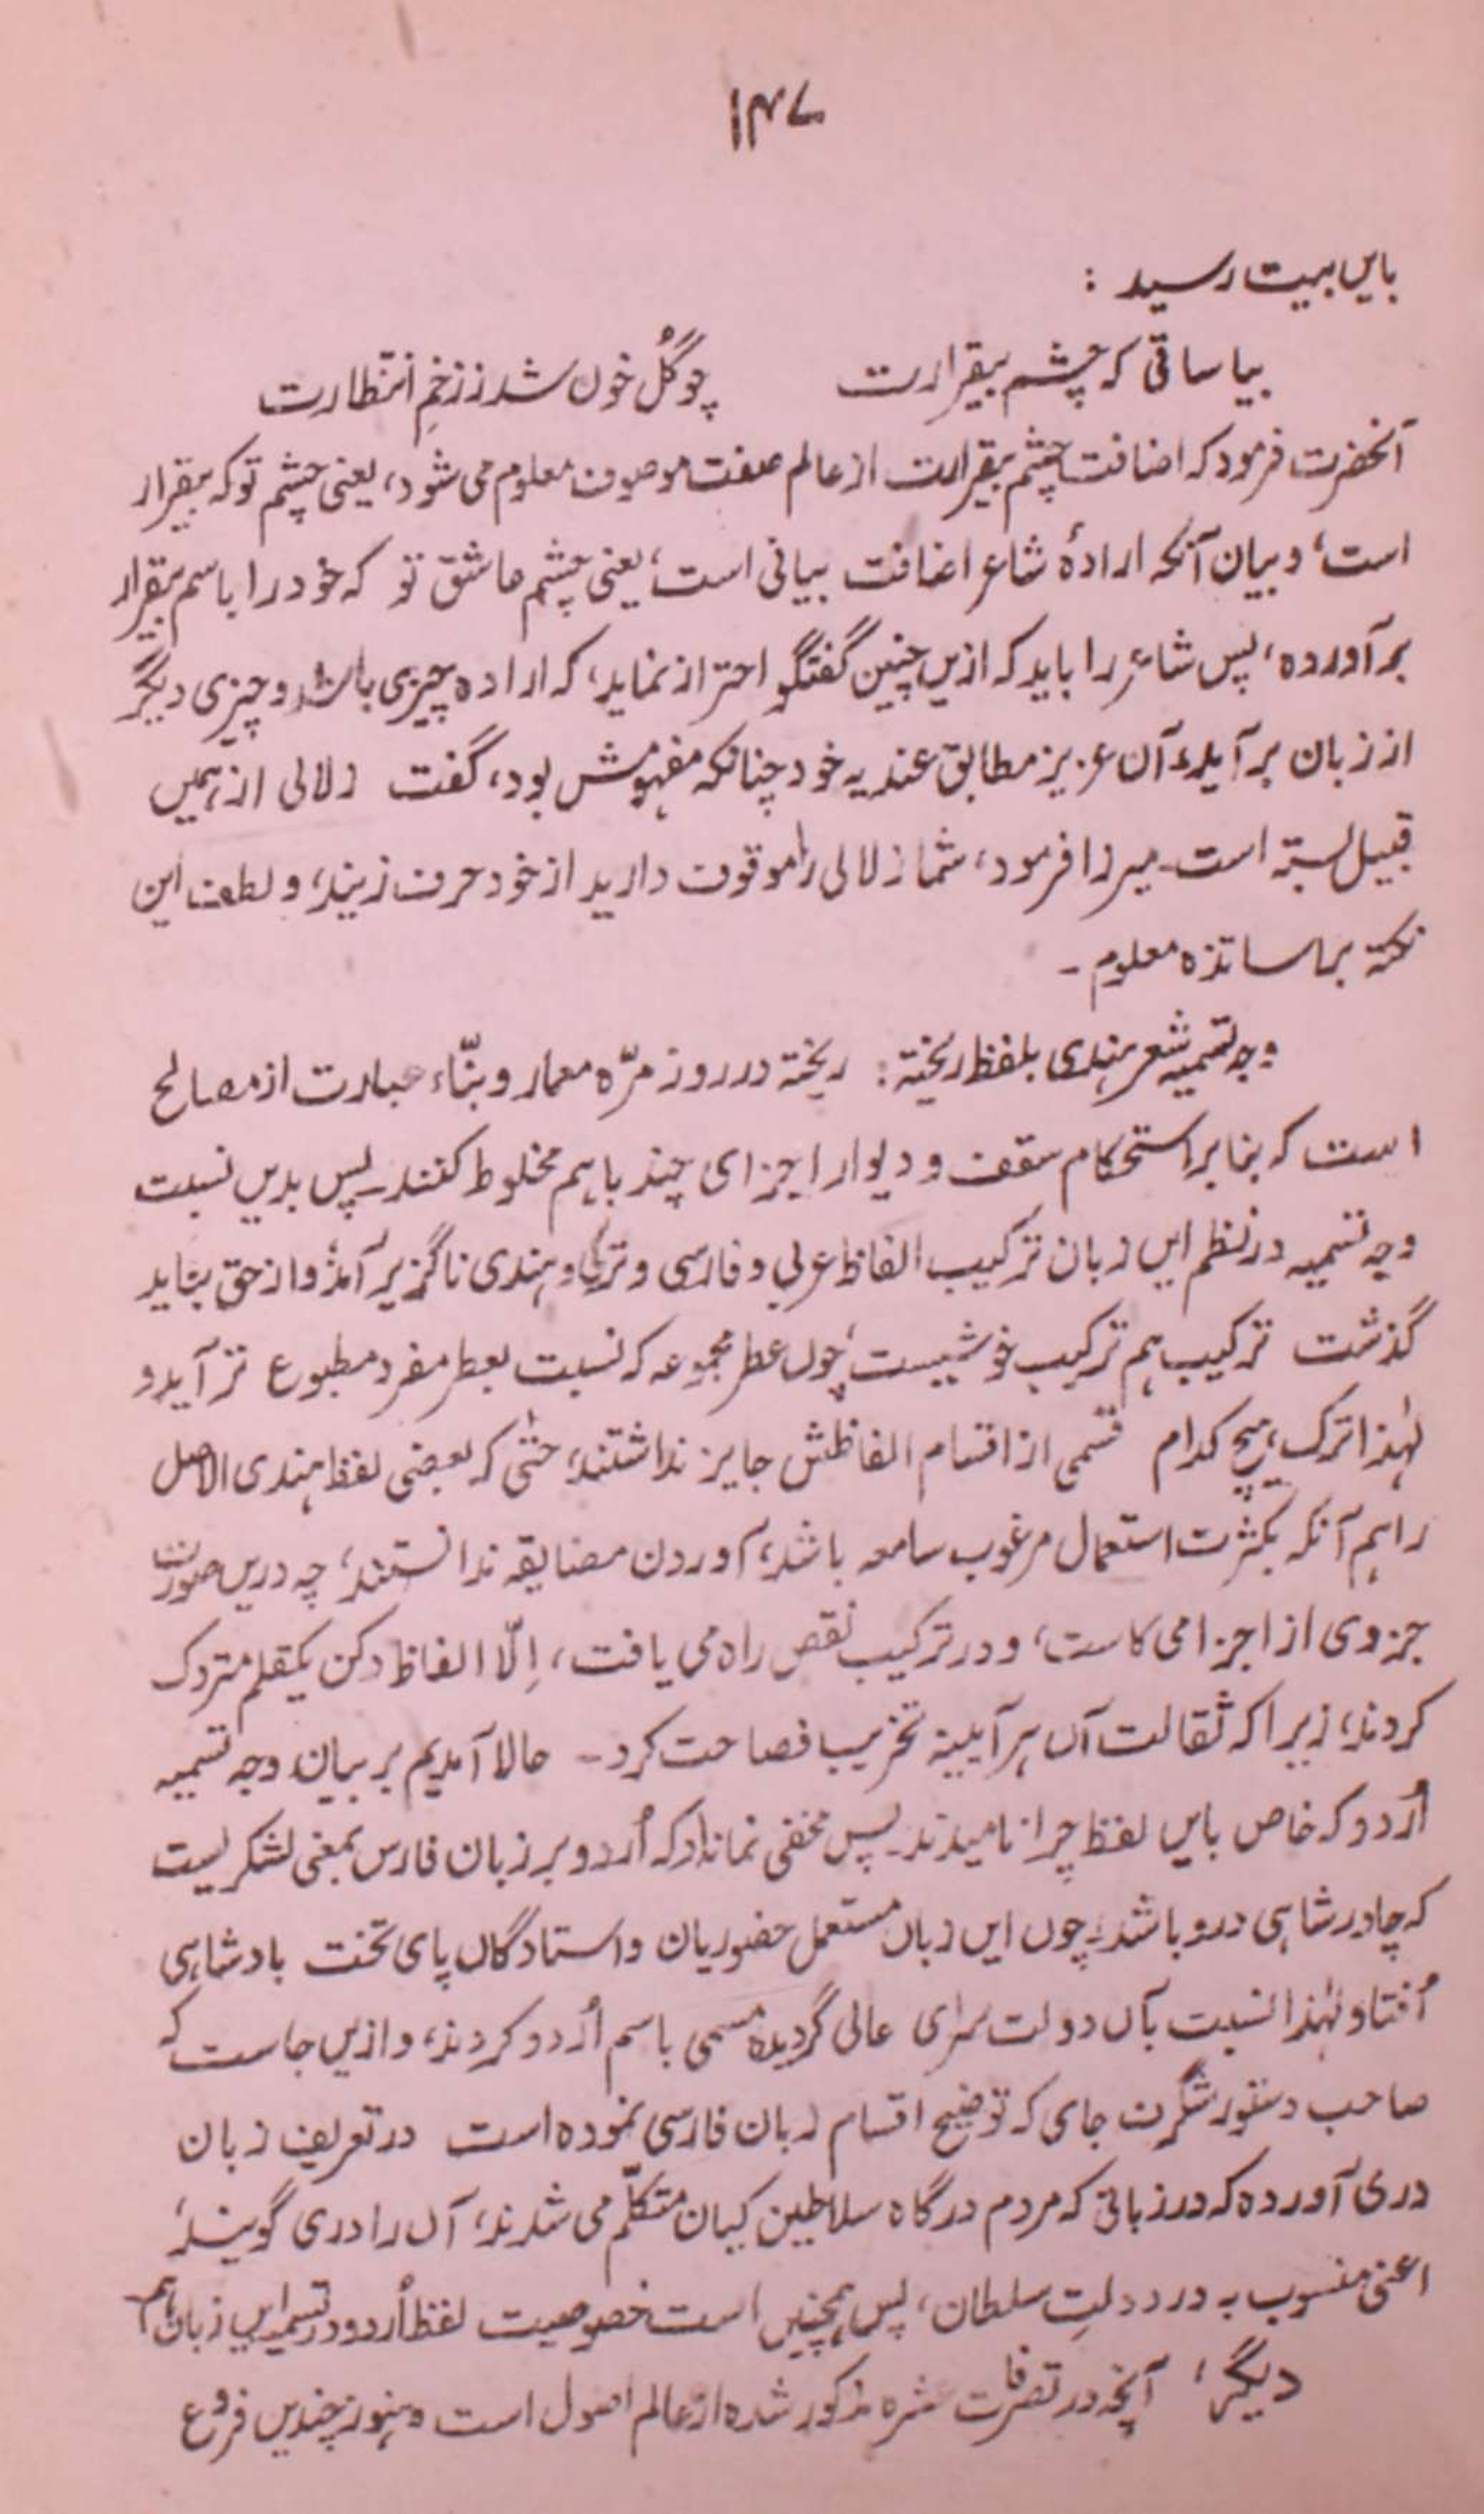 ۱۴۷
بایں بیت رسید :
بیا ساقی که چشم بیقرارت چو گُل خون شد ز زخمِ انتظارت
آنحضرت فرمود که اضافت چشم بیقرارت از عالم صفت موصوف معلوم می شود، یعنی چشم تو که بیقرار
است، و بیان آنکه ارادۂ شاعر اضافت بیانی است، یعنی چشم عاشق تو که خود را باسم بیقرار
بر آورده، پس شاعر را باید که ازیں چنین گفتگو احتراز نماید، که اراده چیزی باشد و چیزی دیگر
از زبان بر آید، آن عزیز مطابق عندیه خود چنانکه مفهومش بود، گفت زلالی از همیں
قبیل بسته است۔ میرزا فرمود، شما زلالی را موقوف دارید از خود حرف زنید، و لطف این
نکته بر اساتذه معلوم ۔
وجه تسمیه شعر هندی بلفظ ریخته : ریخته در روز مرّه معمار و بنّاء عبارت از مصالح
است که بنا بر استحکام سقف و دیوار اجزای چند باهم مخلوط کنند۔ پس بدیں نسبت
وجه تسمیه در نظم ایں زبان ترکیب الفاظ عربی و فارسی و ترکی و هندی ناگزیر آمد، و از حق نباید
گذشت ترکیب هم ترکیب خوشیست، چوں عطر مجموعه که نسبت بعطر مفرد مطبوع تر آید، و
لهٰذا ترک هیچ کدام قسمی از اقسام الفاظش جایز نداشتند، حتٰی که بعضی لفظ هندی الاصل
را هم آنکه بکثرت استعمال مرغوب سامعه باشد، آوردن مضایقه ندانستند، چه دریں صورت
جزوی از اجزا می کاست، و در ترکیب نقص راه می یافت، اِلّا الفاظ دکن یکقلم متروک
کردند، زیرا که ثقالت آں هر آیینه تخریب فصاحت کرد ۔ حالا آمدیم بر بیان وجه تسمیه
اُردو که خاص بایں لفظ چرا نامیدند۔ پس مخفی نماناد که اُردو بر زبان فارس بمعنی لشکریست
که چادر شاهی درو باشد۔ چوں ایں زبان مستعمل حضوریان و استادگاں پای تخت بادشاهی
اُفتاد لهٰذا نسبت بآں دولت سرای عالی گردیده مسمی باسم اُردو کردند، و ازیں جاست که
صاحب دستور شگرف جای که توضیح اقسام زبان فارسی نموده است در تعریف زبان
دری آورده که در زبانی که مردم درگاه سلاطین کیان متکلّم می شدند، آں را دری گویند،
اعنی منسوب به در دولتِ سلطان، پس همچنیں است خصوصیت لفظ اُردو در تسمیه ایں زبان هم
دیگر، آنچه در تصرفات عشره مذکور شده از عالم اصول است و هنوز چندیں فروع